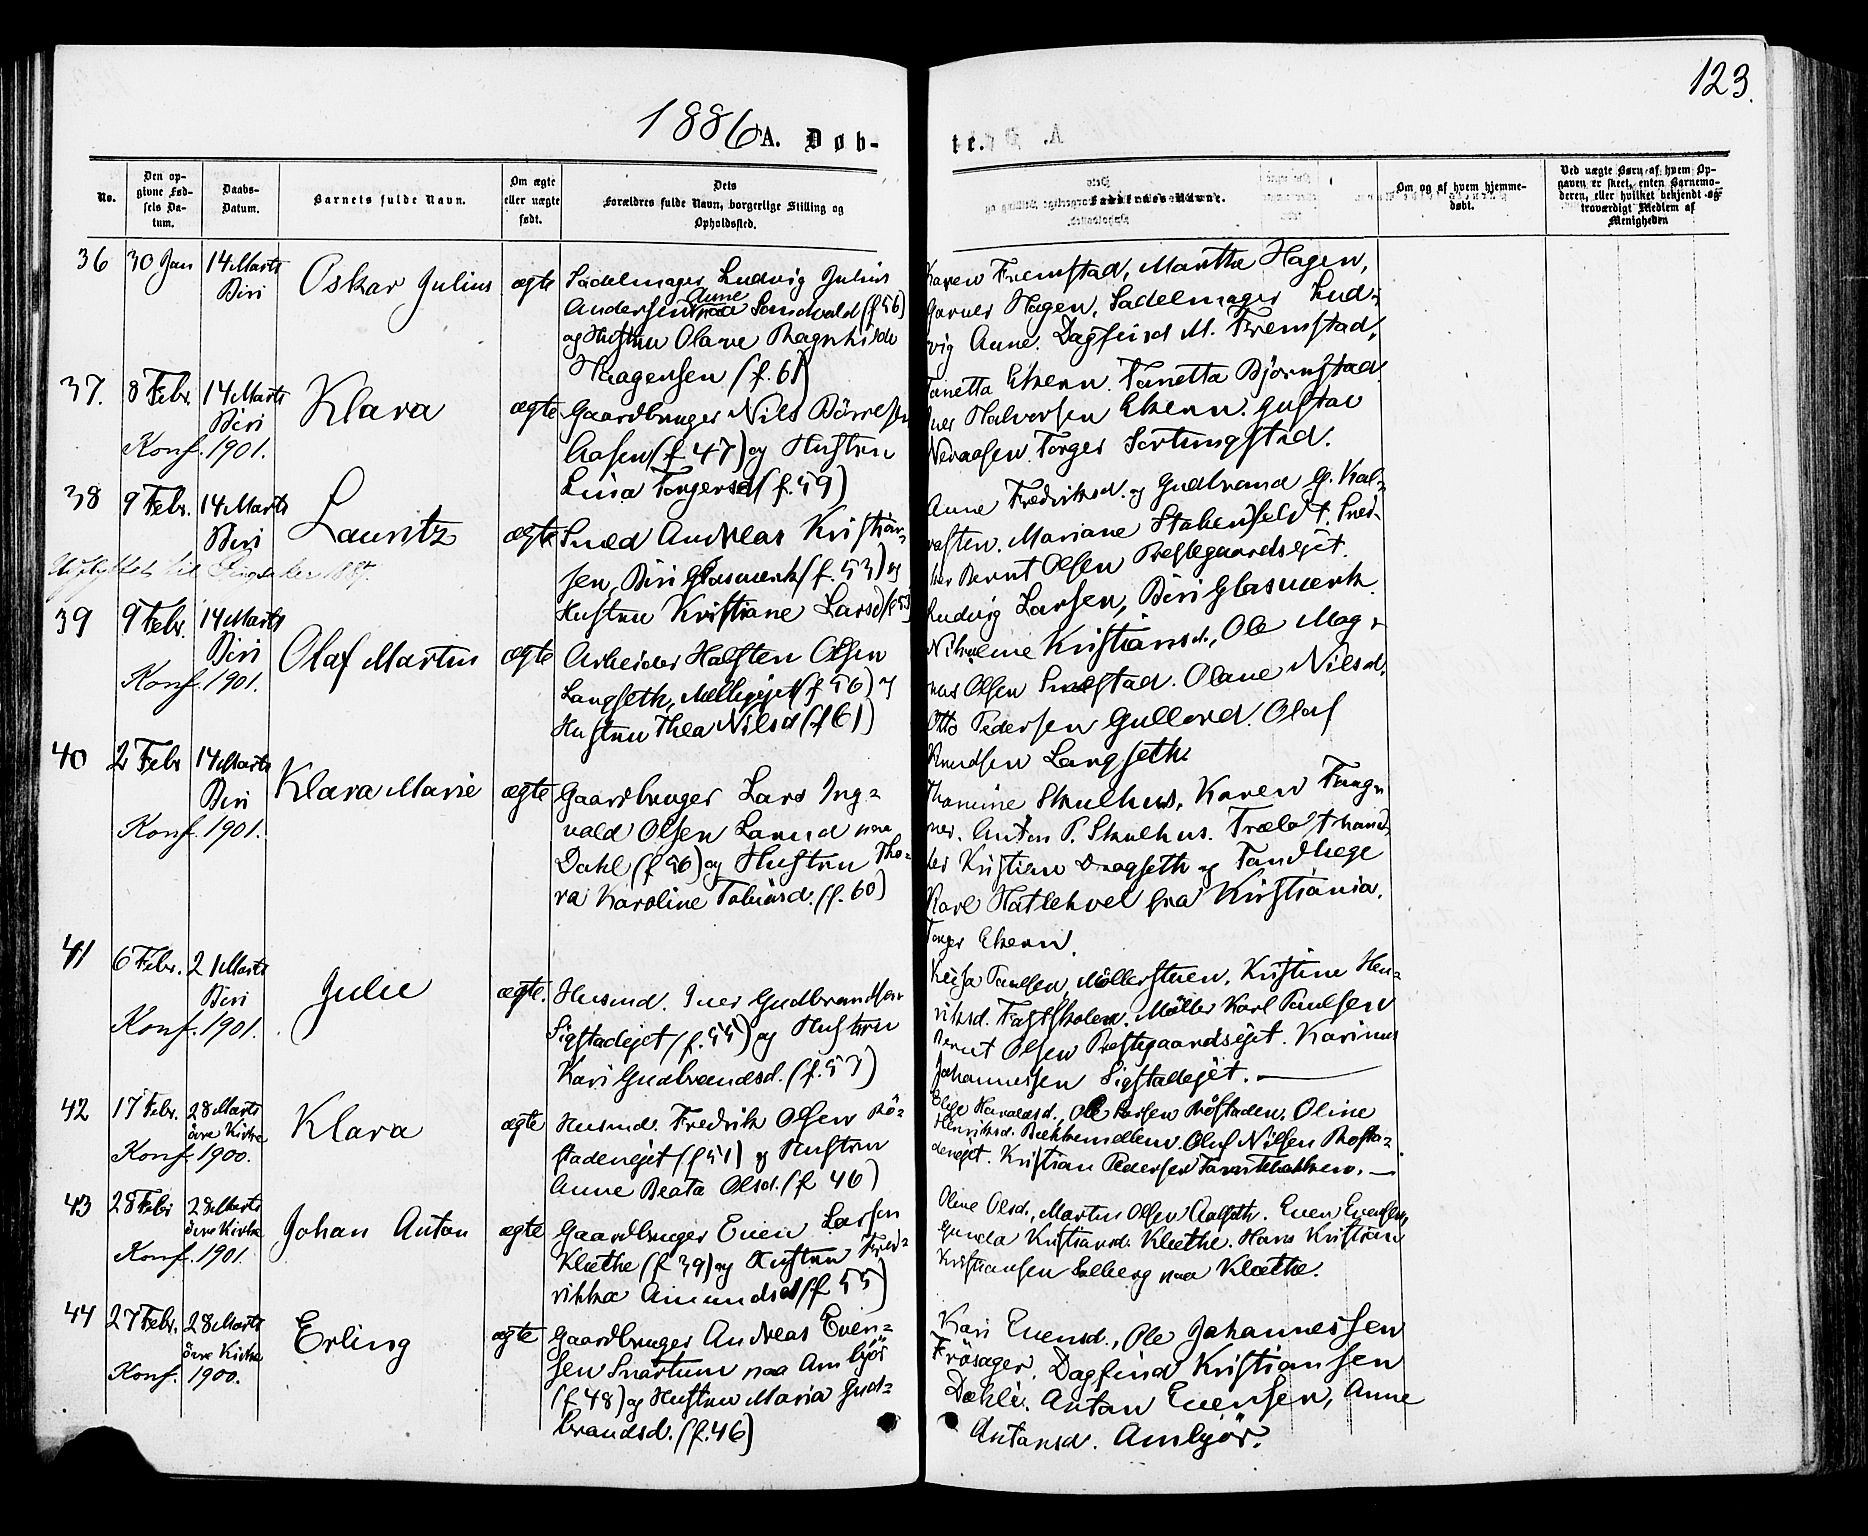 123.
1886 A. Døb-
te.
No.
Den op-
givne Fød-
sels Da-
tum.
Daabs-
Datum.
Barnets fulde Navn.
Om ægte
eller uægte
født.
Dets
Forældres fulde Navn, borgerlige Stilling og
Opholdssted.
Faddernes Navne.
Om og af hvem hjemme-
døbt.
Ved uægte Børn af hvem Op-
gaven er skeet, enten Barnemo-
deren, eller hvilket bekjendt og
troværdigt Medlem af
Menigheden
36 30 Jan 14 Marts
Biri
Oskar Julius
ægte
Sadelmager Ludvig Julius
Andersen Anne Sandvold (f 56)
og Hustru Olave Ragnhilde
Haagensen (f. 61)
Karen Fremstad, Marthe Hagen,
Hagen, Sadelmager Lud-
vig Anne. Dagfind M. Fremstad,
37. 8 Febr. 14 Marts
Biri
Konf. 1901.
Klara
ægte
Gaardbruger Nils Börresen
Aasen (f 47) og Hustru
Lina Torgersd (f. 59)
Tanetta Ekern. Tanetta Bjørnstad.
Iver Halvorsen Ekern. Gustav
Neraasen. Torger Sortungstad.
38 9 Febr. 14 Marts
Biri
Udflyttet til Ringsaker 1887.
Lauritz
ægte
Smed Andreas Kristian-
sen, Biri Glasværk (f. 53) og
Hustru Kristiane Larsd (f 53)
Anne Fredriksd. og Gudbrand G. Kal-
vesten. Mariane Stakensfeldt. Sned-
ker Bernt Olsen Prestegaardsejet.
Ludvig Larsen, Biri Glasværk.
39 9 Febr. 14 Marts
Biri
Konf. 1901.
Olaf Martin
ægte
Arbeider Halsten Olsen
Langseth, (f 56) og
Hustru Thea Nilsd (f 61)
Nikoline Kristiansd., Ole Mag-
nus Olsen Smedstad. Olane Nilsd.
Otto Pedersen Gullord. Olaf
Knudsen Langseth
40 2 Febr 14 Marts
Biri
Konf. 1901.
Klara Marie
ægte
Gaardbruger Lars Ing-
vald Olsen Larud paa
Dahl (f 56) og Hustru Tho-
ra Karoline Tobiasd. (f. 60)
Thomine Skulhus, Karen Faug-
ner. Anton P. Skulhus. Trælasthand-
ler Kristian Dragseth og Tandlæge
Karl Hatlehvel fra Kristiania.
Torger Ekern.
41 6 Febr. 21 Marts
Biri
Konf. 1901.
Julie
ægte.
Husmd. Iver Gudbrandsen
Sigstadejet (f. 55) og Hustru
Kari Gudbrandsd. (f. 57)
Paulsen, Möllerstuen. Kristine Hen-
riksd. Fastskolen. Møller Karl Paulsen
Bernt Olsen Prestegaardsejet. Karinus
Johannessen Sigstadejet. —
42 17 Febr. 28 Marts
övre Kirke
Konf. 1900.
Klara
ægte
Husmd. Fredrik Olsen Rö-
stadenejet (f 51) og Hustru
Anne Beata Olsd. (f 46)
Elise Haraldsd., Ole Larsen Røstaden. Oline
Henriksd. Bækkemellem. Oluf Nilsen Rosta-
denejet. Kristian Pedersen —
43 28 Febr 28 Marts
övre Kirke
Konf. 1901.
Johan Anton
ægte
Gaardbruger Even Larsen
Kløthe (f 39) og Hustru Fred-
rikka Amundsd (f 55)
Oline Olsd., Martin Olsen Aalseth. Even Evensen,
Gunda Kristiansd. Kløthe. Hans Kristian
Kristiansen Solberg paa Kløthe.
44 27 Febr. 28 Marts
övre Kirke
Konf. 1900.
Erling
ægte
Gaardbruger Andreas Even-
sen Snartum paa Amlyör
(f 48) og Hustru Maria Gud-
brandsd. (f. 46)
Kari Evensd., Ole Johannessen
Frösager. Dagfind Kristiansen
Dæhli. Anton Evensen, Anne
Antonsd. Amlyör.